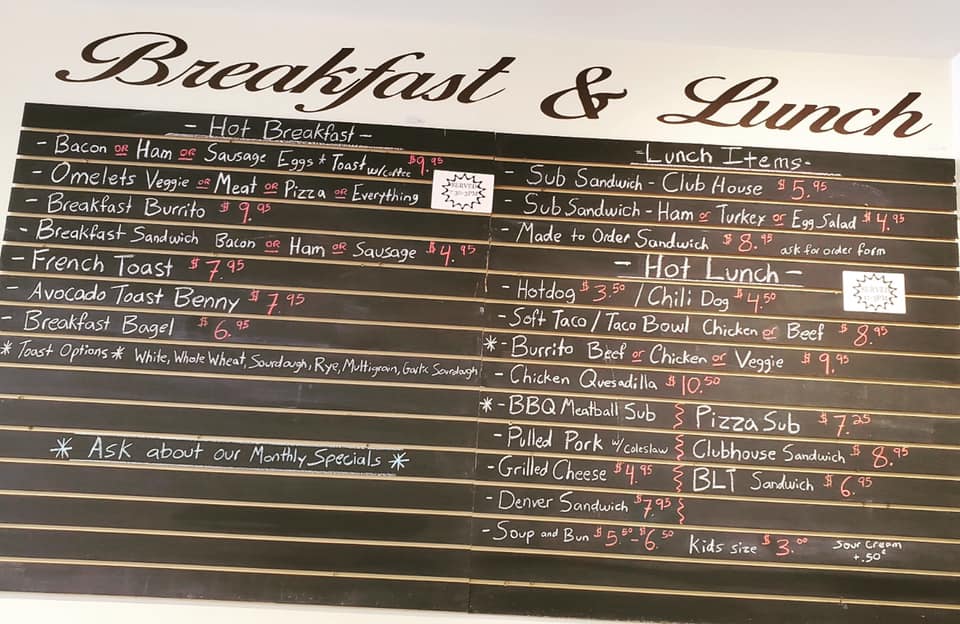 Breakfast & Lunch
- Hot Breakfast -
- Bacon or Ham or Sausage Eggs * Toast w/coffee $9.95
- Omelets Veggie or Meat or Pizza or Everything
SERVED
- Breakfast Burrito $9.95
- Breakfast Sandwich Bacon or Ham or Sausage $4.95
- French Toast $7.95
- Avocado Toast Benny $7.95
- Breakfast Bagel $6.95
* Toast Options * White, Whole Wheat, Sourdough, Rye, Multigrain, Garlic Sourdough
* Ask about our Monthly Specials *
- Lunch Items -
- Sub Sandwich - Club House $5.95
- Sub Sandwich - Ham or Turkey or Egg Salad $4.95
- Made to Order Sandwich $8.95 ask for order form
- Hot Lunch -
SERVED
- Hotdog $3.50 / Chili Dog $4.50
- Soft Taco / Taco Bowl Chicken or Beef $8.95
* - Burrito Beef or Chicken or Veggie $9.95
- Chicken Quesadilla $10.50
* - BBQ Meatball Sub Pizza Sub $7.25
- Pulled Pork w/ Coleslaw Clubhouse Sandwich $8.95
- Grilled Cheese $4.95 BLT Sandwich $6.95
- Denver Sandwich $7.95
- Soup and Bun $5.50 - $6.50 Kids size $3.00 Sour Cream
+.50¢